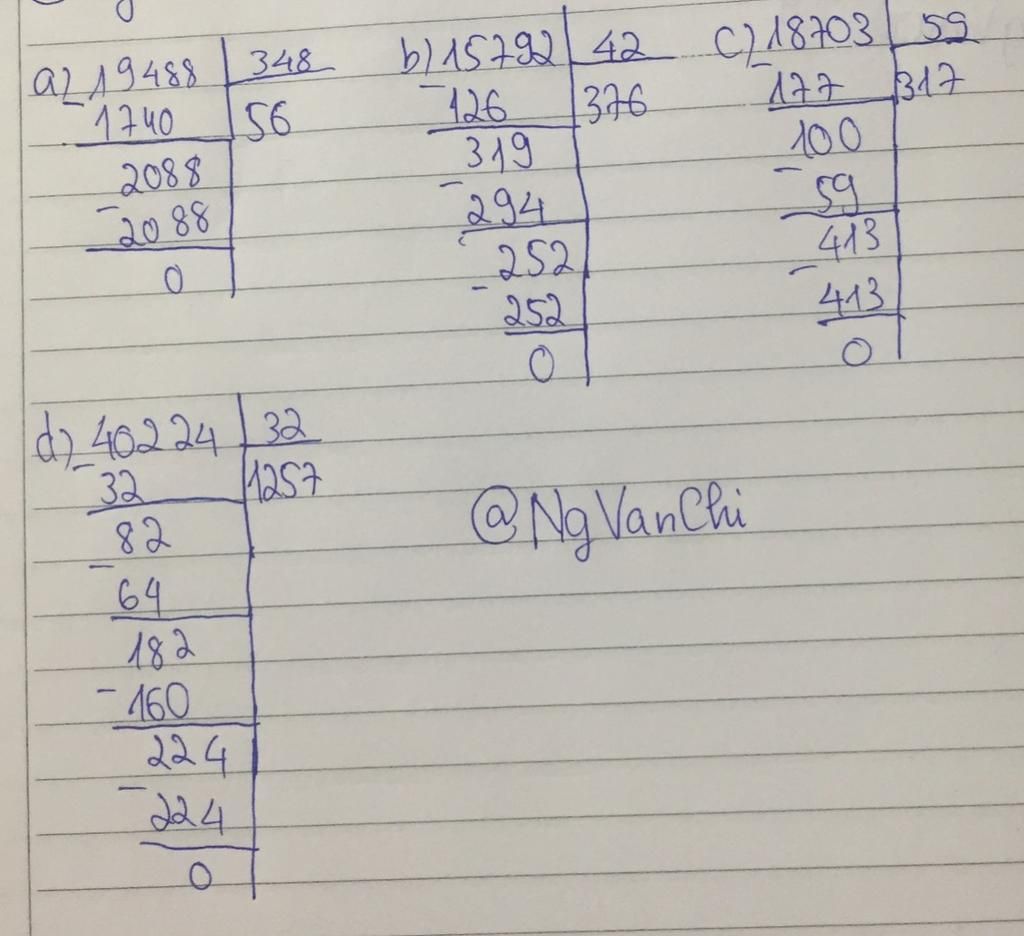 a) 19488 348
- 1740 56
2088
- 2088
0
b) 15792 42
- 126 376
319
- 294
252
- 252
0
c) 18703 59
- 177 317
100
- 59
413
- 413
0
d) 40224 32
- 32 1257
82
- 64
182
- 160
224
- 224
0
@NgVanChi